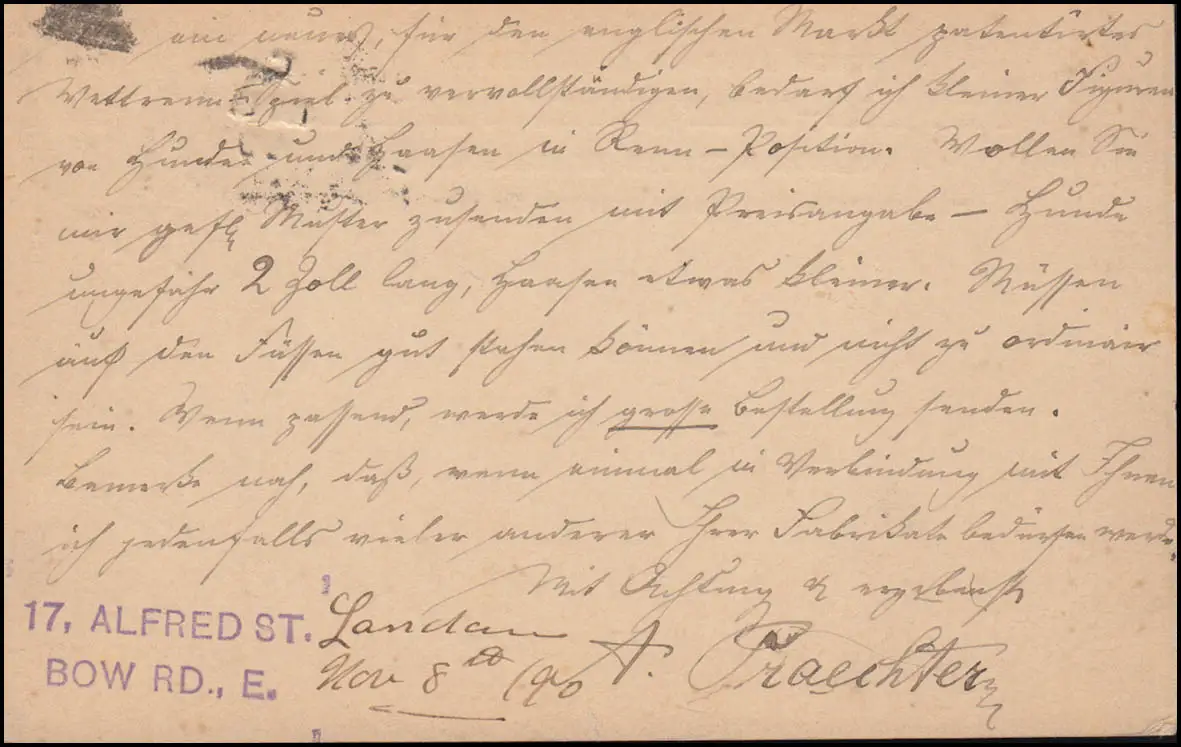 ein neues, für den englischen Markt patentirtes
Wettrenn-Spiel zu vervollständigen, bedarf ich kleiner Figuren
von Hunden und Haasen in Renn-Position. Wollen Sie
mir gefl. Muster zusenden mit Preisangabe – Hunde
ungefähr 2 Zoll lang, Haasen etwas kleiner. Müssen
auf den Füssen gut stehen können und nicht zu ordinär
sein. Wenn passend, werde ich grosse Bestellung senden.
Bemerke noch, daß, wenn einmal in Verbindung mit Ihnen
ich jedenfalls vieler anderer Ihrer Fabrikate bedürfen werde.
Mit Achtung & ergebenst
17, ALFRED ST. London
BOW RD., E. Nov 8th A. Praechter